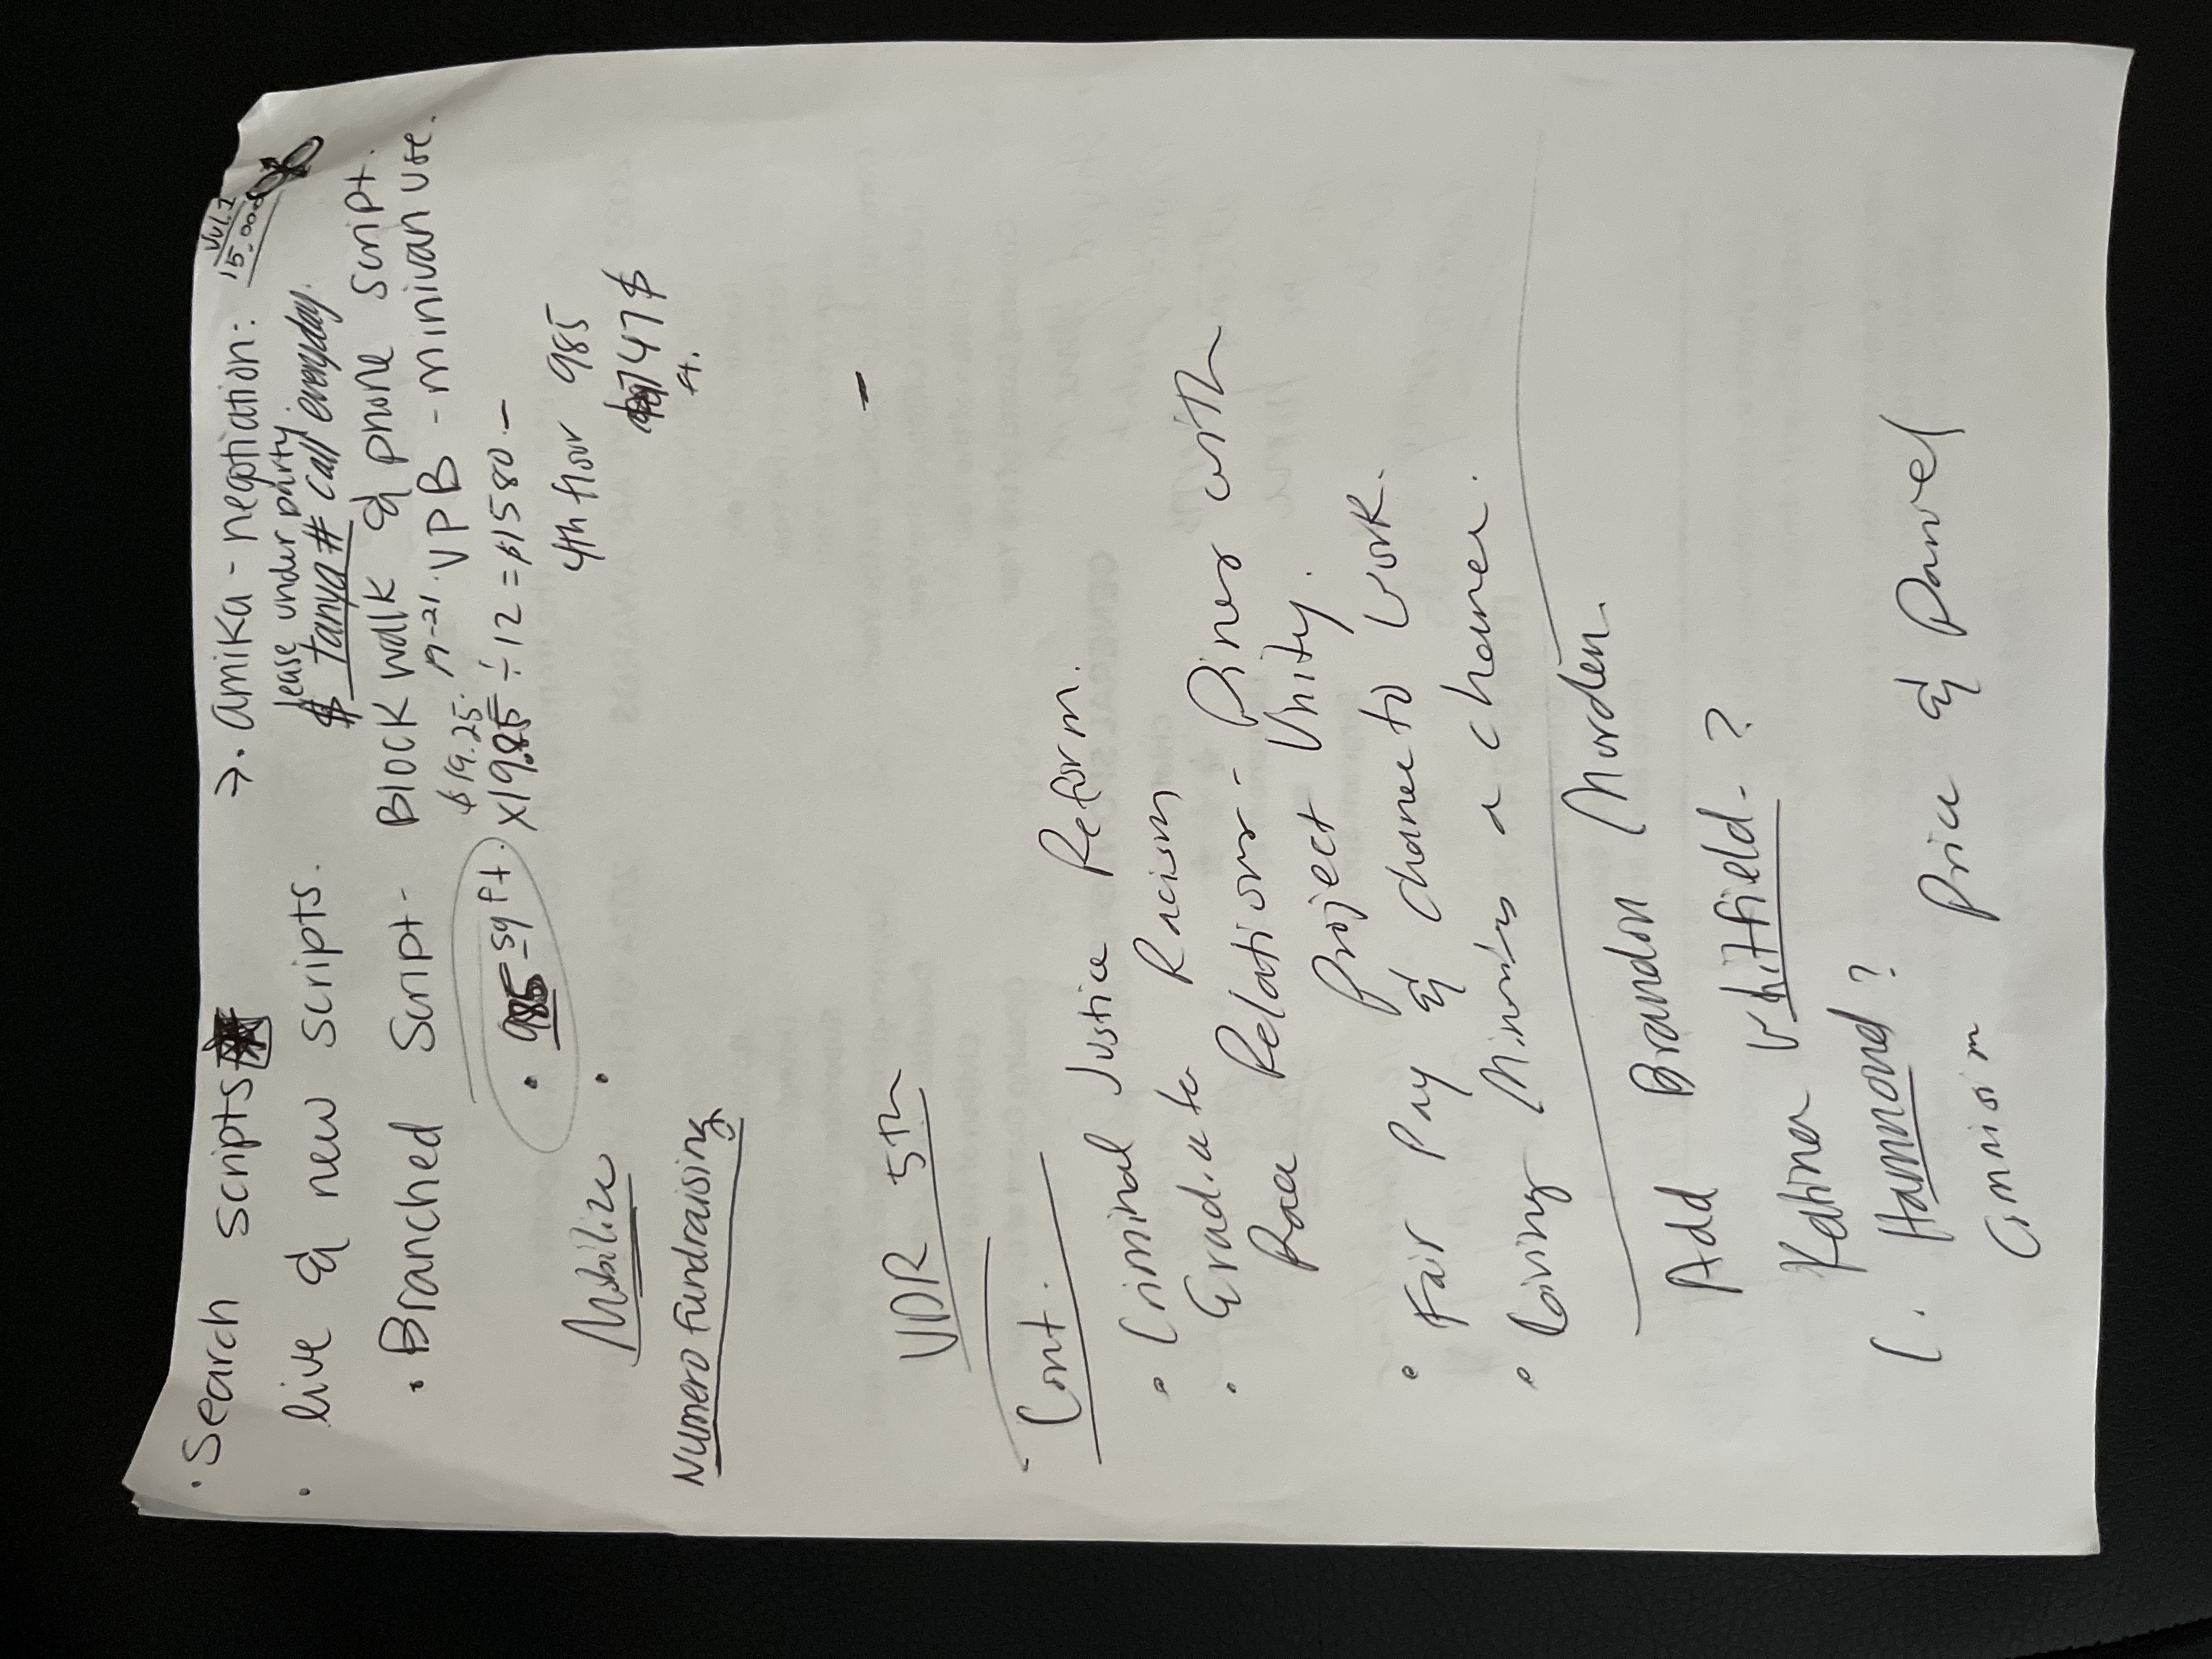 • Search scripts
→ • Amika - negotiation:
Jul. 1
15,000
lease under party.
• live & new scripts.
$ Tanya # call everyday.
• Branched Script - Block walk & phone script.
19-21 • VPB - minivan use.
$19.25
• 985 sq ft. x19.25 ÷ 12 = $1580 -
4th floor 985
Mobilize •
747 $
ft.
Numero Fundraising
-
VDR 5th
Cont.
• Criminal Justice Reform.
• Eradicate Racism
Race Relations - Diner with
Project Unity.
• Fair Pay & chance to work.
• Giving Minorites a chance.
Add Brandon Murden.
Katina Whitfield - ?
C. Hammond ?
Price & Daniel